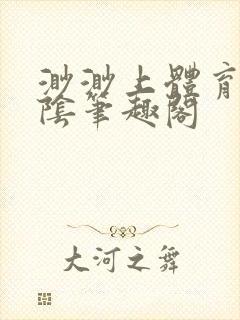 渺渺上體育
陰筆趣閣
大河之舞